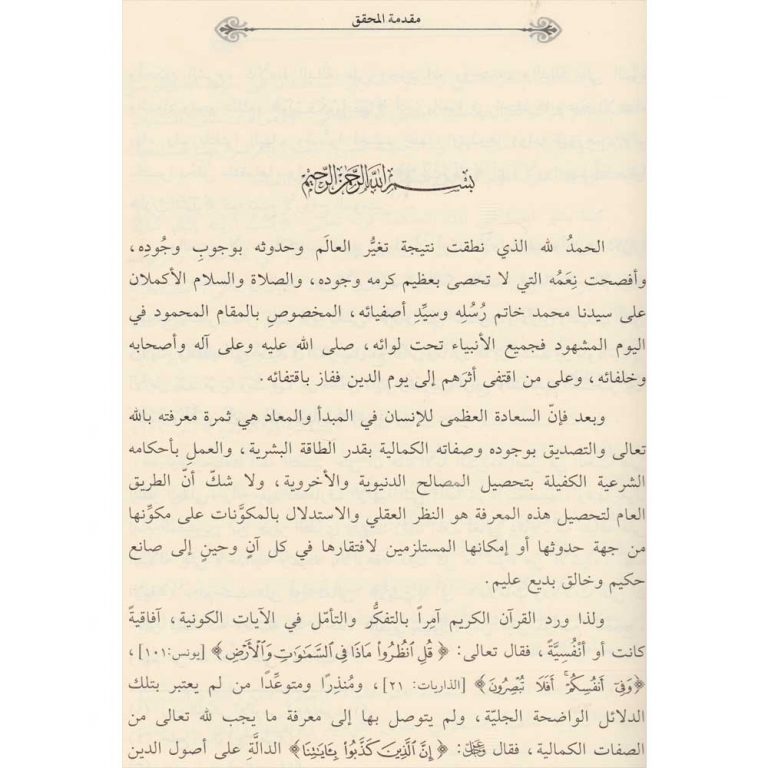 مقدمة المحقق
بسم الله الرحمن الرحيم
الحمدُ لله الذي نطقت نتيجة تغيُّر العالَم وحدوثه بوجوبِ وجُودِه،
وأفصحت نِعَمُه التي لا تحصى بعظيم كرمه وجوده، والصلاة والسلام الأكملان
على سيدنا محمد خاتم رُسُلِه وسيِّدِ أصفيائه، المخصوصِ بالمقام المحمود في
اليوم المشهود فجميع الأنبياء تحت لوائه، صلى الله عليه وعلى آله وأصحابه
وخلفائه، وعلى من اقتفى أثرَهم إلى يوم الدين ففاز باقتفائه.
وبعد فإنّ السعادة العظمى للإنسان في المبدأ والمعاد هي ثمرة معرفته بالله
تعالى والتصديق بوجوده وصفاته الكمالية بقدر الطاقة البشرية، والعملِ بأحكامه
الشرعية الكفيلة بتحصيل المصالح الدنيوية والأخروية، ولا شكّ أنّ الطريق
العام لتحصيل هذه المعرفة هو النظر العقلي والاستدلال بالمكوَّنات على مكوِّنها
من جهة حدوثها أو إمكانها المستلزمين لافتقارها في كل آنٍ وحينٍ إلى صانع
حكيم وخالق بديع عليم.
ولذا ورد القرآن الكريم آمِراً بالتفكُّر والتأمّل في الآيات الكونية، آفاقيةً
كانت أو أنْفُسِيَّةً، فقال تعالى: ﴿قُلِ ٱنظُرُوا۟ مَاذَا فِى ٱلسَّمَٰوَٰتِ وَٱلْأَرْضِ﴾ [يونس:١٠١]،
﴿وَفِىٓ أَنفُسِكُمْ ۚ أَفَلَا تُبْصِرُونَ﴾ [الذاريات: ٢١]، ومُنذِرًا ومتوعِّدًا من لم يعتبر بتلك
الدلائل الواضحة الجليّة، ولم يتوصل بها إلى معرفة ما يجب لله تعالى من
الصفات الكمالية، فقال ﷻ: ﴿إِنَّ ٱلَّذِينَ كَذَّبُوا۟ بِـَٔايَٰتِنَا﴾ الدالةِ على أصول الدين